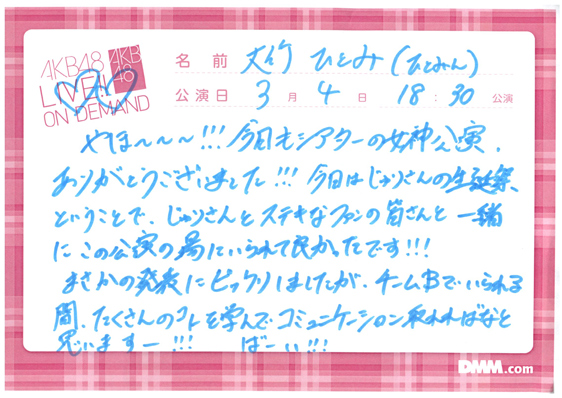 AKB48
LIVE!!
ON DEMAND
AKB
48
名前 大竹 ひとみ(ひとみん)
公演日 3月4日 18:30 公演
やほ〜〜〜!!! 今日もシアターの女神公演、
ありがとうございました!!! 今日はじゅりさんの生誕祭、
ということで、じゅりさんとステキなファンの皆さんと一緒
にこの公演の場にいられて良かったです!!!
まさかの発表にビックリしましたが、チームBでいられる
間、たくさんのコトを学んでコミュニケーション取れればなと
思いますー!!! ばーい!!!
DMM.com